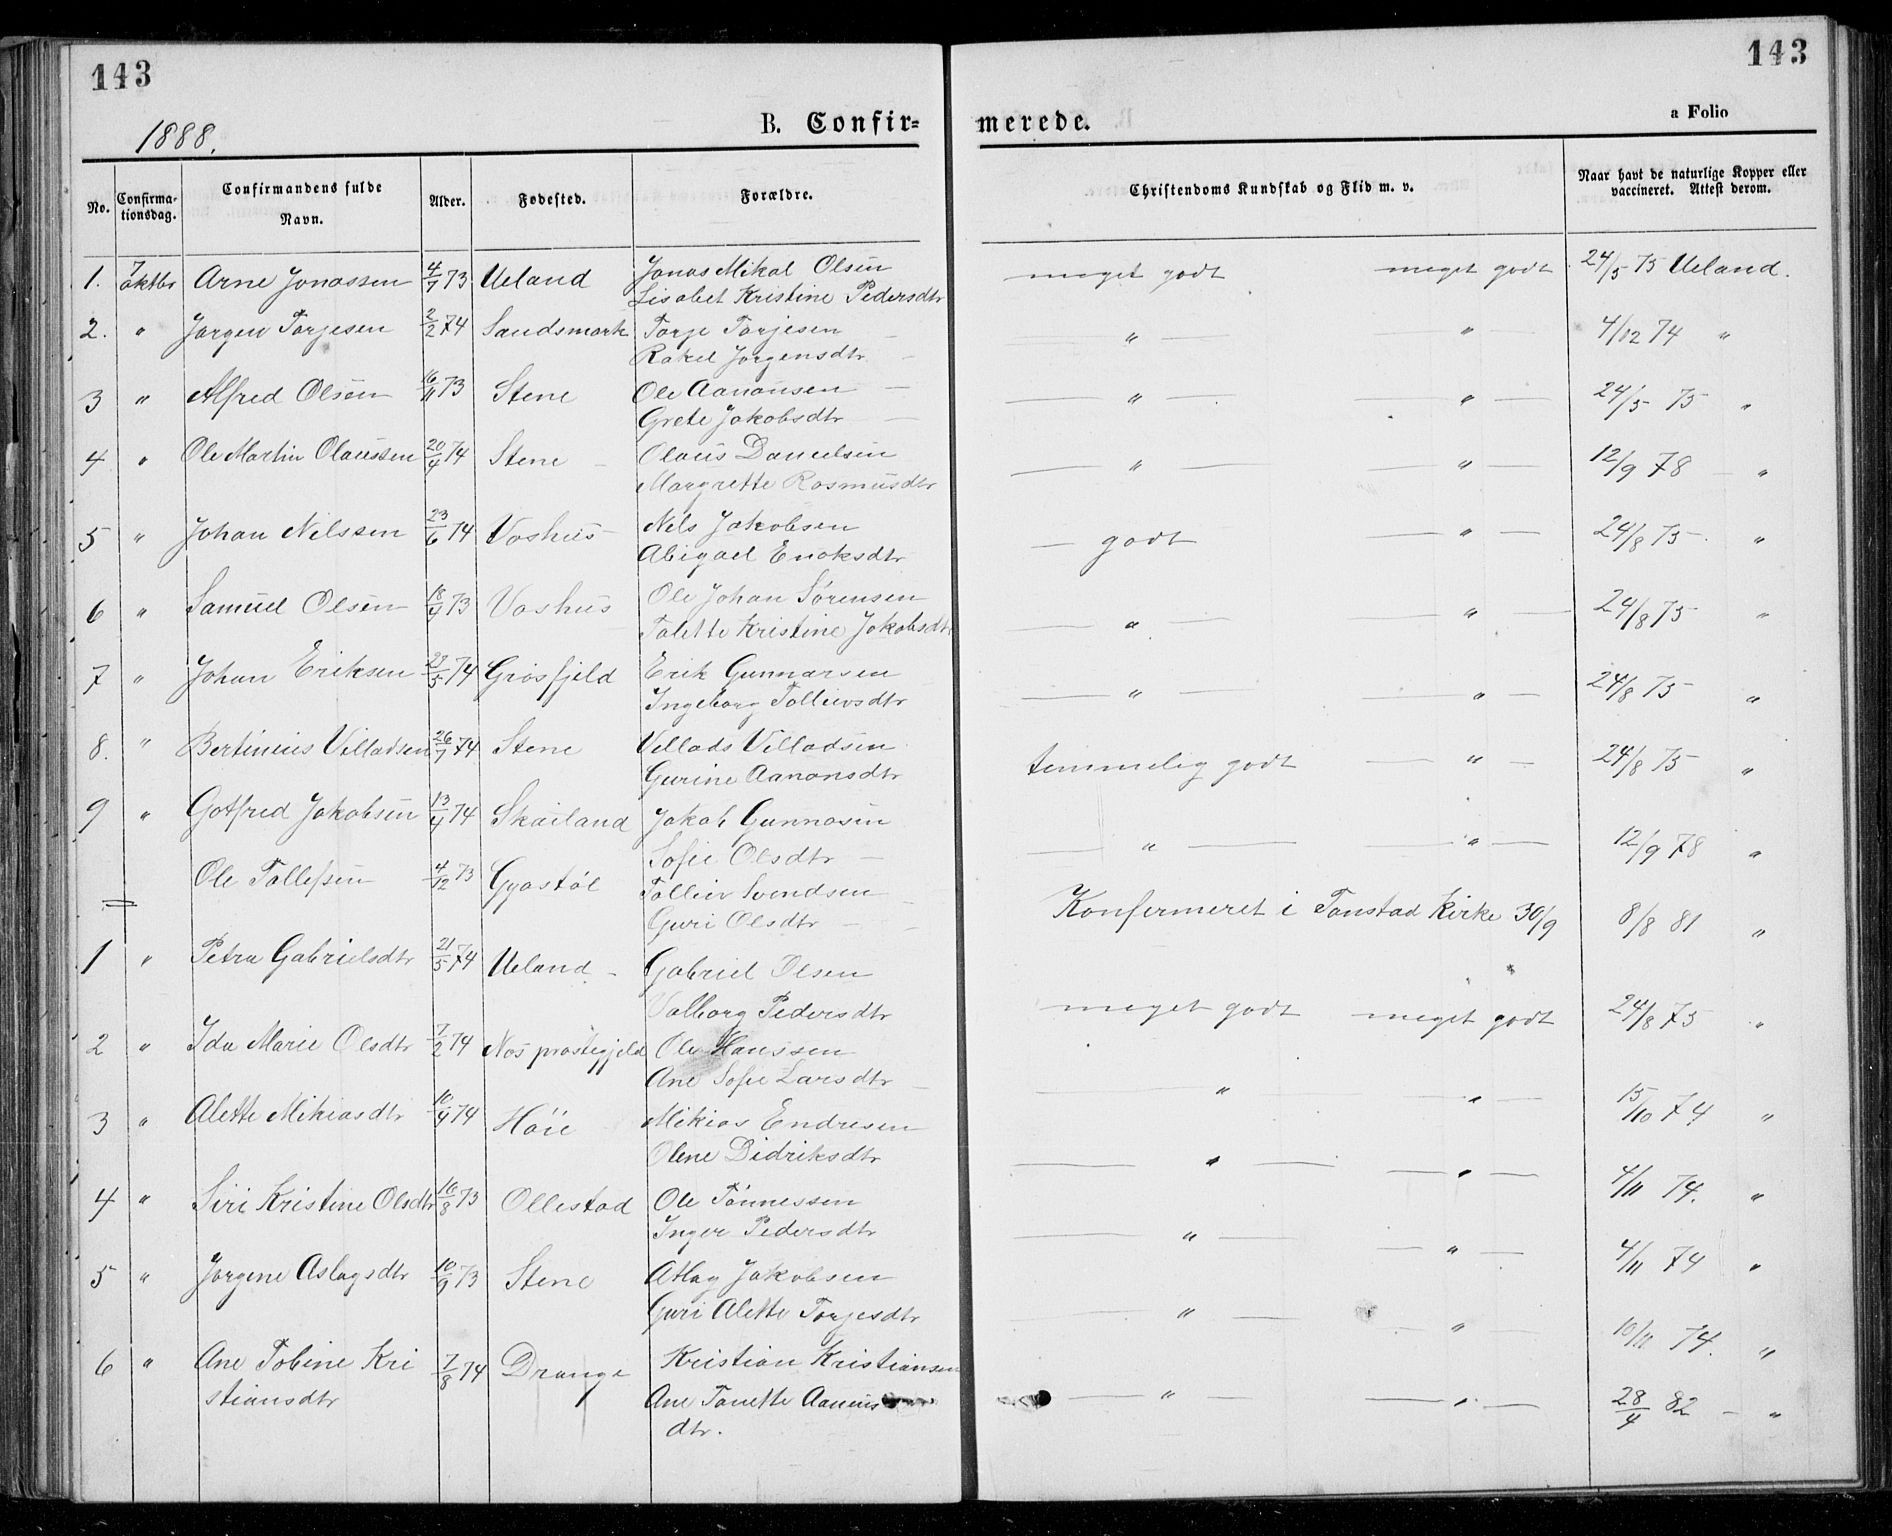 143
143
1888.
B. Confir=
merede.
a Folio
No. Confirma-tionsdag. Confirmandens fulde Navn. Alder. Fødested. Forældre. Christendoms Kundskab og Flid m. v. Naar havt de naturlige Kopper eller vaccineret. Attest derom.
1. 7 oktbr Arne Jonassen 4/7 73 Ueland Jonas Mikal Olsen meget godt meget godt 24/5 75 Ueland.
Lisabet Kristine Pedersdtr
2. " Jørgen Torjesen 2/2 74 Sandsmark Torje Torjesen — " — " — 4/12 74 "
Rakel Jørgensdtr
3 " Alfred Olsen 16/11 73 Stene Ole Aanonsen — " — " — 24/5 75 "
Grete Jakobsdtr
4 " Ole Martin Olaussen 20/4 74 Stene Olaus Danielsen — " — " — 12/9 78 — "
Margrette Rasmusdtr
5 " Johan Nilssen 23/6 74 Voshus Nels Jakobsen — godt — " — 24/8 75 "
Abigael Enoksdtr
6 " Samuel Olsen 18/4 73 Voshus Ole Johan Sørensen — " — " — 24/8 75 "
Talette Kristine Jakobsdtr
7 " Johan Eriksen 23/5 74 Grøsfjeld Erik Gunnarsen — " — " — 24/8 75 "
Ingeborg Tolleivsdtr
8. " Bertinius Villadsen 26/7 74 Stene Villads Villadsen temmelig godt — " — 24/8 75 "
Gurine Aanonsdtr
9 " Gotfred Jakobsen 13/4 74 Skailand Jakob Gunnasen — " — " — 12/9 78 "
Sofie Olsdtr
Ole Tollefsen 4/12 73 Gyastøl Tolleiv Svendsen Konfermeret i Tonstad Kirke 30/9 8/8 81 "
Guri Olsdtr
1 " Petra Gabrielsdtr 21/5 74 Ueland Gabriel Olsen meget godt meget godt 24/8 75 "
Valborg Pedersdtr
2 " Ida Marie Olsdtr 7/2 74 Nes prestegjeld Ole Hanssen — " — " — 15/10 74 "
Ane Sofie Larsdtr
3 " Alette Mikiasdtr 10/4 74 Høie Mikias Endresen — " — " — 4/11 74. "
Olene Didriksdtr
4 " Siri Kristine Olsdtr 16/8 73 Ollestad Ole Tønnessen — " — " — 4/11 74 "
Inger Pedersdtr
5 " Jørgene Aslagsdtr 10/9 73 Stene Aslag Jakobsen — " — " — 10/11 74. "
Guri Alette Torjesdtr
6 " Ane Tobine Kri 7/8 74 Drange Kristian Kristiansen — " — " — 28/4 82 — "
stiansdtr Ane Tonette Aanuns
dtr.